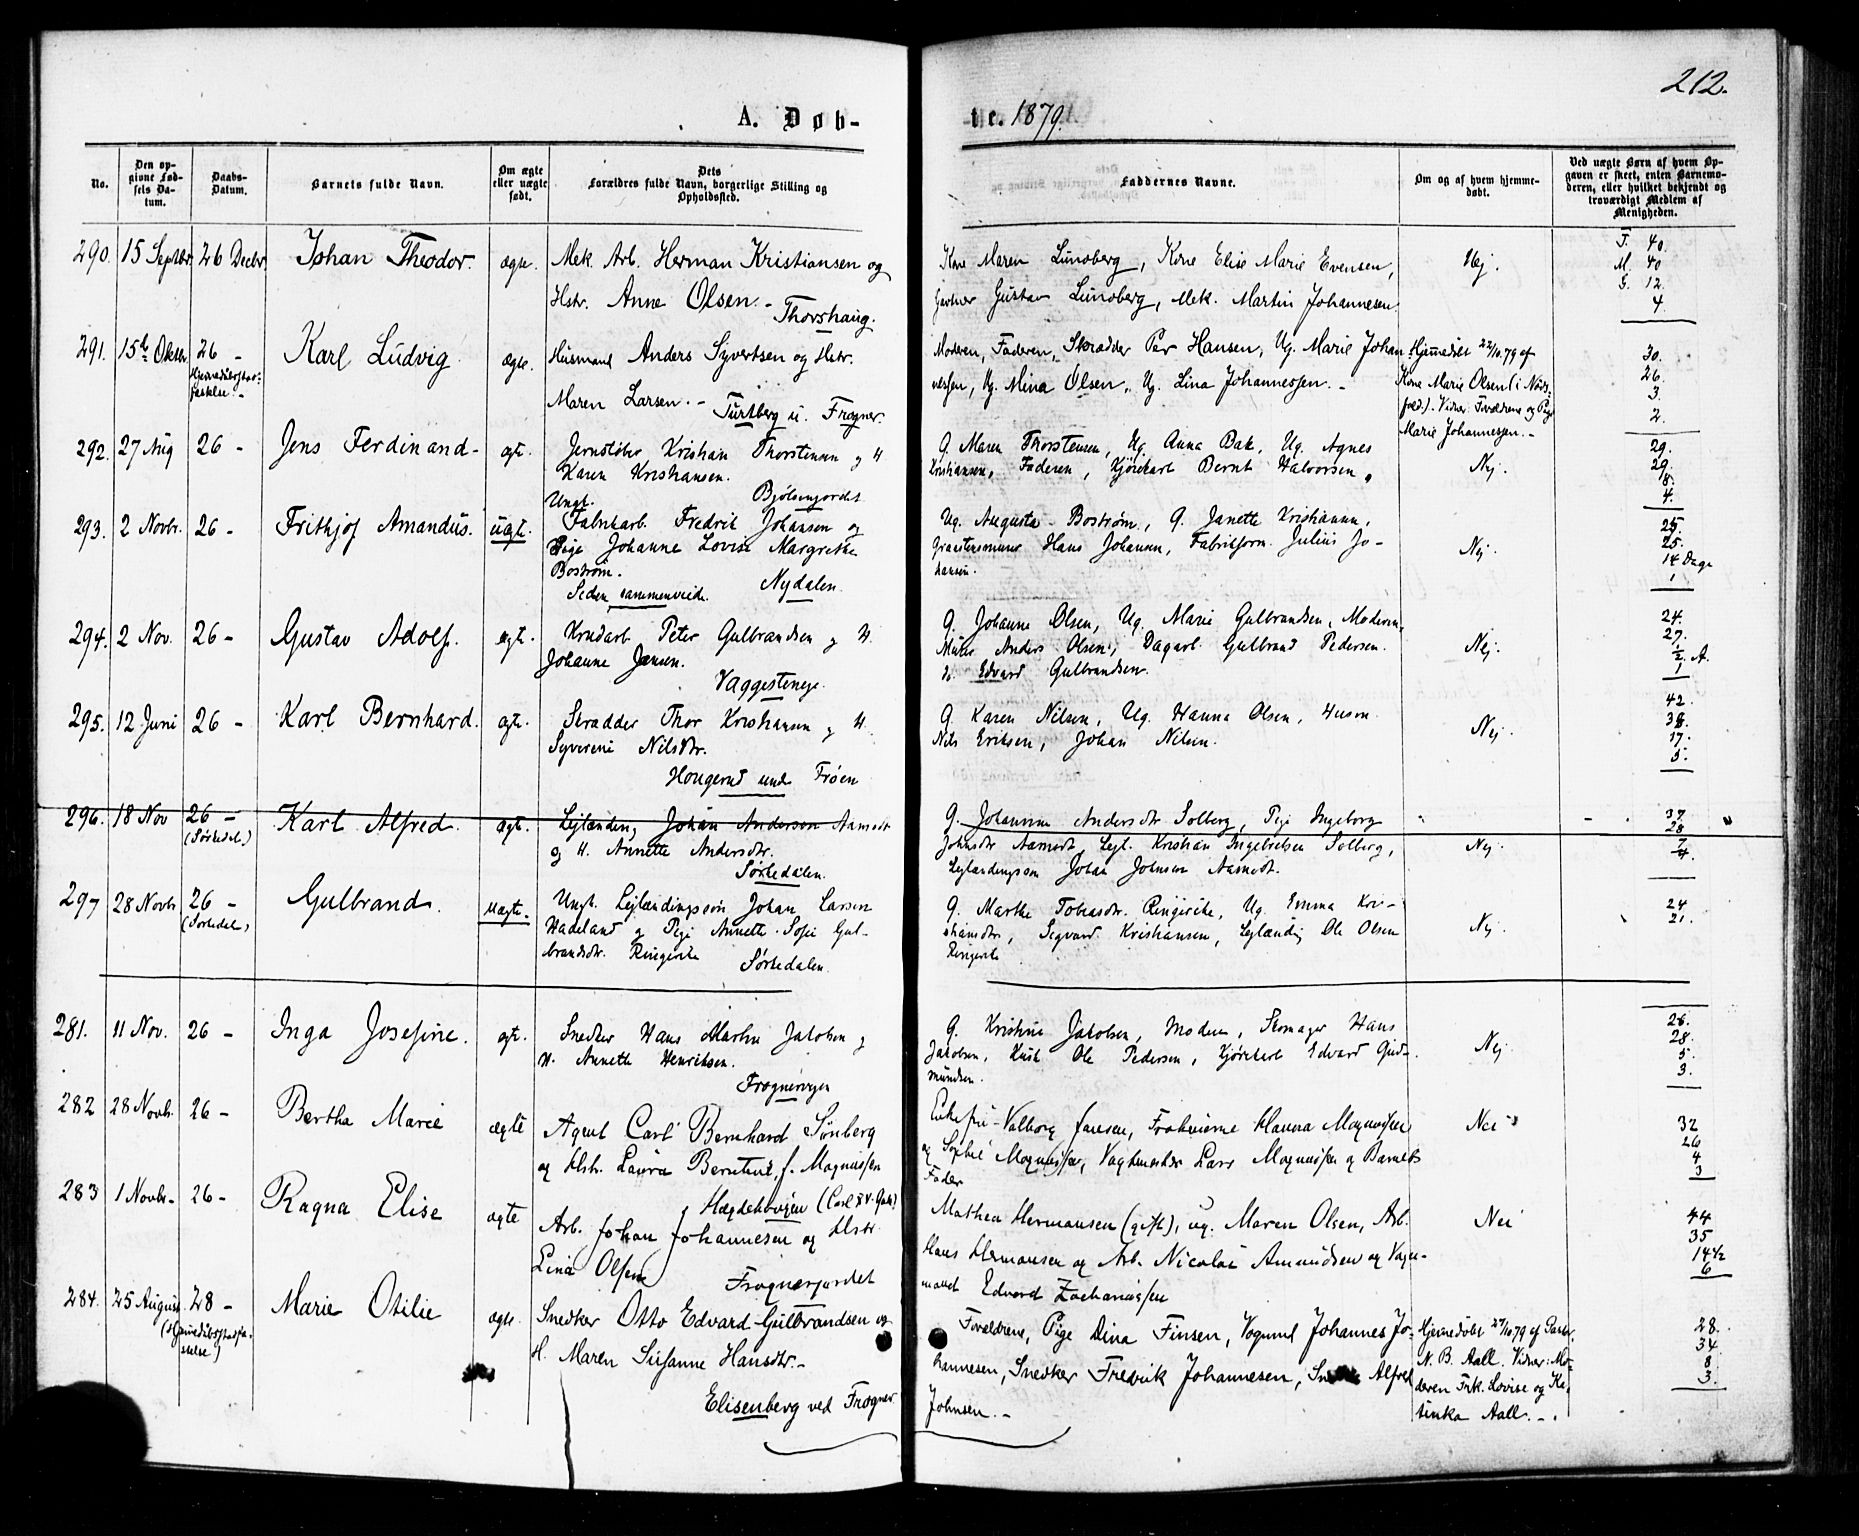 212.
A. Døb-
te. 1879.
No.
Den op-
givne Fød-
sels Da-
tum.
Daabs-
Datum.
Barnets fulde Navn.
Om ægte
eller uægte
født.
Dets
Forældres fulde Navn, borgerlige Stilling og
Opholdssted.
Faddernes Navne.
Om og af hvem hjemme-
døbt.
Ved uægte Børn af hvem Op-
gaven er skeet, enten Barnemo-
deren, eller hvilket bekjendt og
troværdigt Medlem af
Menigheden.
290. 15 Septbr. 26 Decbr Johan Theodor. ægte. Mek. Arb. Herman Kristiansen og
Hstr. Anne Olsen. - Thorshaug.
Kone Maren Lundberg, Kone Elise Marie Evensen,
Gartner Gustav Lundberg, Mek. Martin Johannesen
Nej.
F. 40.
M. 40
G. 12.
4.
291. 15de Oktbr 26 - Karl Ludvig ægte. Husmand Anders Syvertsen og Hstr.
Maren Larsen. - Turtberg u. Frogner.
Moderen, Faderen, Skrædder Per Hansen, Ug. Marie Johan-
nessen, Ug. Mina Olsen, Ug. Lina Johannessen. -
Hjemmedøbt 22/10.79 af
Kone Marie Olsen (i Nøds-
fald). Vidner: Forældrene og Pige
Marie Johannessen. -
30.
26.
3.
2.
292. 27 Aug 26 - Jens Ferdinand - ægt. Jernstøber Kristian Thorstensen og H
Karen Kristiansen.
Bjølsenjordet
G. Maren Thorstensen, Ug. Anna Bak, Ug. Agnes
Kristiansen, Faderen, Kjørekarl Bernt Halvorsen,
Nej.
29.
29.
8.
4.
293. 2 Novbr. 26 - Frithjof Amandus. uægte. Ungk.
Fabrikarb. Fredrik Johansen og
Pige Johanne Lovise Margrethe
Bostrøm.
Siden sammenviede. Nydalen.
Ug. Augusta Bostrøm, G. Janette Kristianna,
Hans Johansen, Fabrikform. Julius Jo-
hansen.
Nej.
25.
25.
14 Dage
1
294. 2 Nov. 26 - Gustav Adolf. ægt. Krudarb Peter Gulbrandsen og H.
Johanne Jansen.
Vaggestenege.
G. Johanne Olsen, Ug. Marie Gulbrandsen, Moderen,
Murer Anders Olsen, Dagarb. Gulbrand Pedersen.
U. Edvard Gulbrandsen.
Nej.
24.
27.
1/2. A.
1
295. 12 Juni 26 - Karl Bernhard. ægt. Skrædder Thor Kristiansen og H.
Syverine Nilsdtr.
Hougerud under Frøen
G. Karen Nilsen, Ug. Hanna Olsen, Husm.
Nils Eriksen, Johan Nilsen.
Nej.
42.
17.
5.
296. 18 Nov 26 - Karl Alfred. ægt. Leilænding Johan Andersen Aamodt
(Sørkedal.)
og H. Annette Andersdtr.
Sørkedalen.
G. Johanne Andersdtr Solberg, Pige Ingeborg
Johnsdtr Aamodt, Leil. Kristian Ingebretsen Solberg,
Leilændingssøn Johan Johnsen Aamodt.
Nej.
37.
28
7
4.
297 28 Novbr 26 - Gulbrand. uægte. Ungk. Leilændingssøn Johan Larsen
(Sørkedal)
Hadeland og Pige Annette Sofie Gul-
brandsdtr. Ringerike Sørkedalen.
G. Marthe Tobiasdtr. Ringerike, Ug. Emma Kri-
stiansdtr, Sigvard Kristiansen, Leilænding Ole Olsen
Ringerike
Nej.
24
21.
281. 11 Nov. 26 - Inga Josefine. ægt. Snedker Hans Martin Jakobsen og
H. Annette Henriksen.
Frognerveien
G. Kristine Jakobsen, Moderen, Skomager Hans
Jakobsen, Kusk Ole Pedersen, Kjørekarl Edvard Gud-
mundsen.
Nej
28.
28.
5.
3.
282 28 Novb. 26 - Bertha Marie ægte Agent Carl Bernhard Sønberg
og Hstr. Laura Berntine f. Magnussen
Hægdehougen (Carl XV. Gade)
Enkefru Valborg Jansen, Frøknerne Hanna Magnussen
og Sophie Magnussen, Vagtmester Lars Magnussen og Barnets
Fader
Nei
32
26
4
3
283 1 Novbr - 26 - Ragna Elise ægte Arb. Johan Johannesen og Hstr
Lina Olsen Frognerjordet
Mathea Hermansen (gift), ug. Maren Olsen, Arb.
Hans Hermansen og Arb. Nicolai Amundsen og Vogn-
mand Edvard Zachariassen
Nei
44
35
14 1/2
6
284. 25 August. 28 - Marie Otilie ægte. Snedker Otto Edvard Gulbrandsen og
H. Maren Susanne Hansdtr. -
Elisenberg ved Frogner
Forældrene, Pige Dina Finsen, Vognmd Johannes Jo-
hannesen, Snedker Fredrik Johannesen, Alfred
Johnsen. -
Hjemmedøbt 27/10 79 af Pastor
N. B. Aall. Vidner: Mo-
deren Frk. Lovise og Ka-
tinka Aall. -
28.
34
8
3.